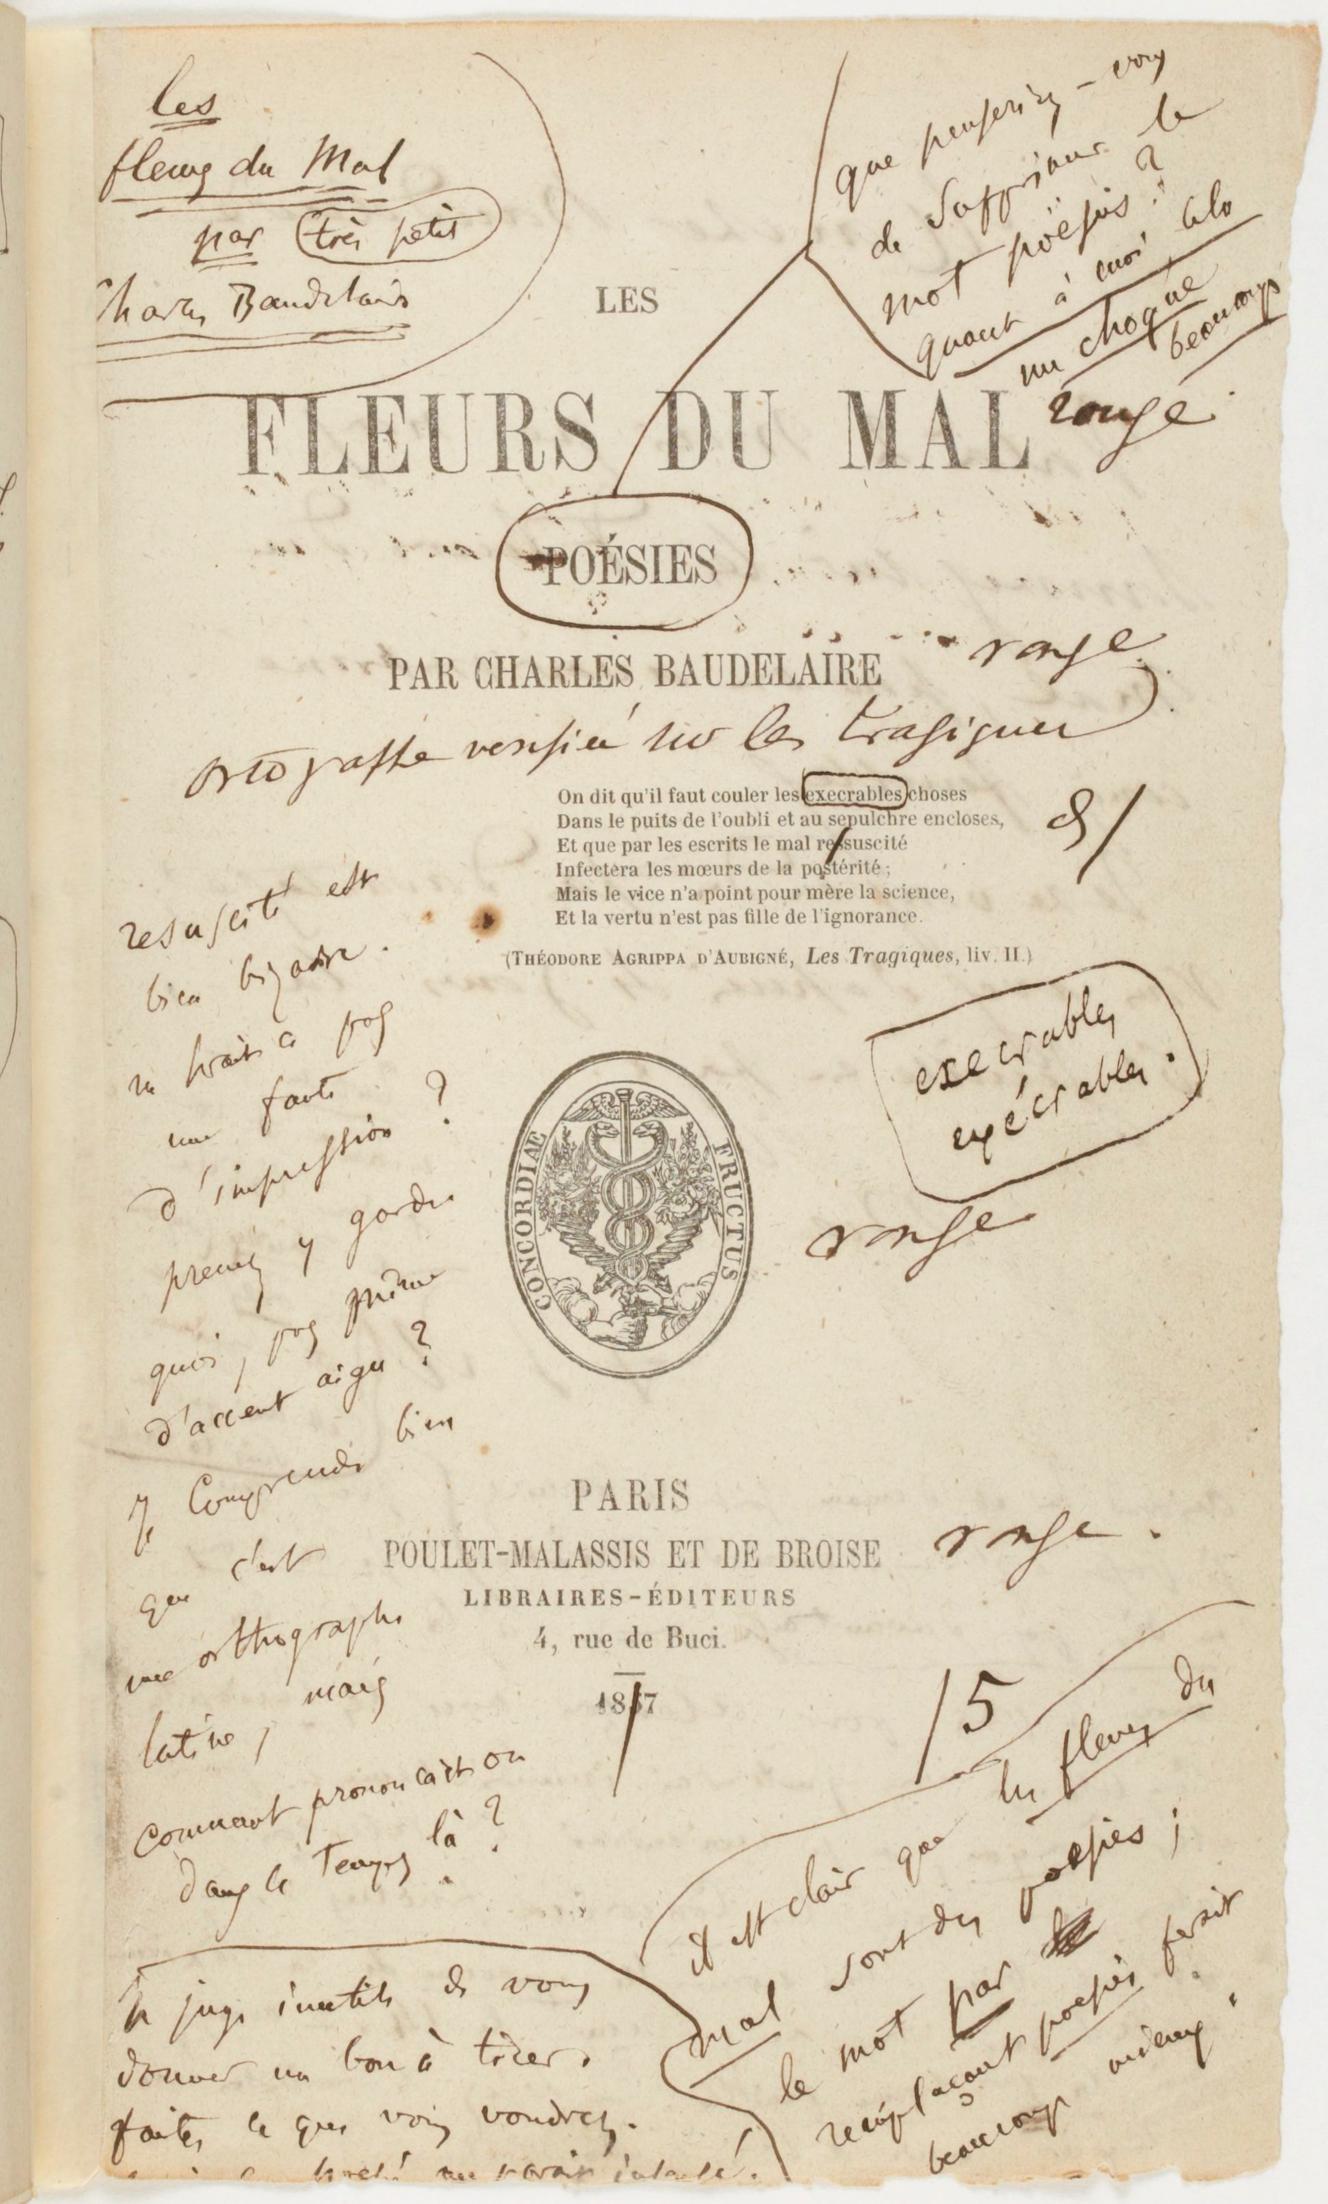 les
fleurs du Mal
par très petit
Charles Baudelaire
que penseriez-vous
de supprimer le
mot poësies ?
quant à moi, cela
me choque
beaucoup
rouge.
LES
FLEURS DU MAL
POÉSIES
PAR CHARLES BAUDELAIRE
rouge
ortographe verifiée sur les tragiques
On dit qu'il faut couler les execrables choses
Dans le puits de l'oubli et au sepulchre encloses,
Et que par les escrits le mal ressuscité
Infectera les mœurs de la postérité ;
Mais le vice n'a point pour mère la science,
Et la vertu n'est pas fille de l'ignorance.
(THÉODORE AGRIPPA D'AUBIGNÉ, Les Tragiques, liv. II.)
resuscité est
bien bizarre.
ne serait ce pas
une faute
d'impression ?
prenez y garde
quoi, pas même
d'accent aigu ?
Je comprends bien
que c'est
une orthographe
latine, mais
comment prononçait on
dans ce temps là ?
execrables
exécrables.
rouge
CONCORDIÆ FRUCTUS
PARIS
POULET-MALASSIS ET DE BROISE
rouge.
LIBRAIRES-ÉDITEURS
4, rue de Buci.
1857
/5
il est clair que les fleurs du
mal sont des poesies ;
le mot par
remplaçant poesies ferait
beaucoup mieux.
Je juge inutile de vous
donner un bon à tirer.
faites ce que vous voudrez.